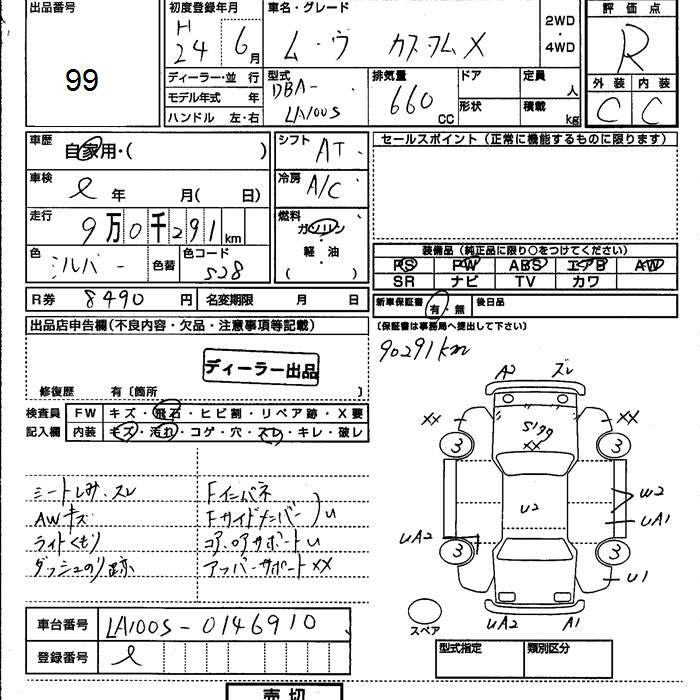 出品番号
99
初度登録年月
H 24 6月
車名・グレード
ムーヴ カスタムX
2WD
・
4WD
評価点
R
ディーラー・並行
モデル年式 年
ハンドル 左・右
型式
DBA-
LA100S
排気量
660 CC
ドア
形状
定員 人
積載 kg
外装 内装
C C
車歴
自家用・( )
シフト
AT
セールスポイント(正常に機能するものに限ります)
車検
年 月(日)
冷房
A/C
走行
9万0千291km
燃料
ガソリン
軽・油
( )
色
シルバー
色替
色コード
S28
装備品(純正品に限り○をつけてください)
PS PW ABS エアB AW
SR ナビ TV カワ
R券 8490円
名変期限 月 日
新車保証書 有・無 後日品
(保証書は事務局へ提出して下さい)
90291km
出品店申告欄(不良内容・欠品・注意事項等記載)
ディーラー出品
修復歴 有〔箇所 〕
検査員
記入欄
FW キズ・飛石・ヒビ割・リペア跡・X要
内装 キズ・汚れ・コゲ・穴・スレ・キレ・破レ
シートしみ、スレ
AWキズ
ライトくもり
ダッシュのり跡
Fインパネ
FサイドメンバーU
コア、ロアサポートU
アッパーサポートXX
A2 ズレ
XX XX
S179
XX
3 3
U2
W2
UA1
UA2
3 3
U1
UA2 A1
スペア
車台番号 LA100S-0146910
登録番号
型式指定 類別区分
売切